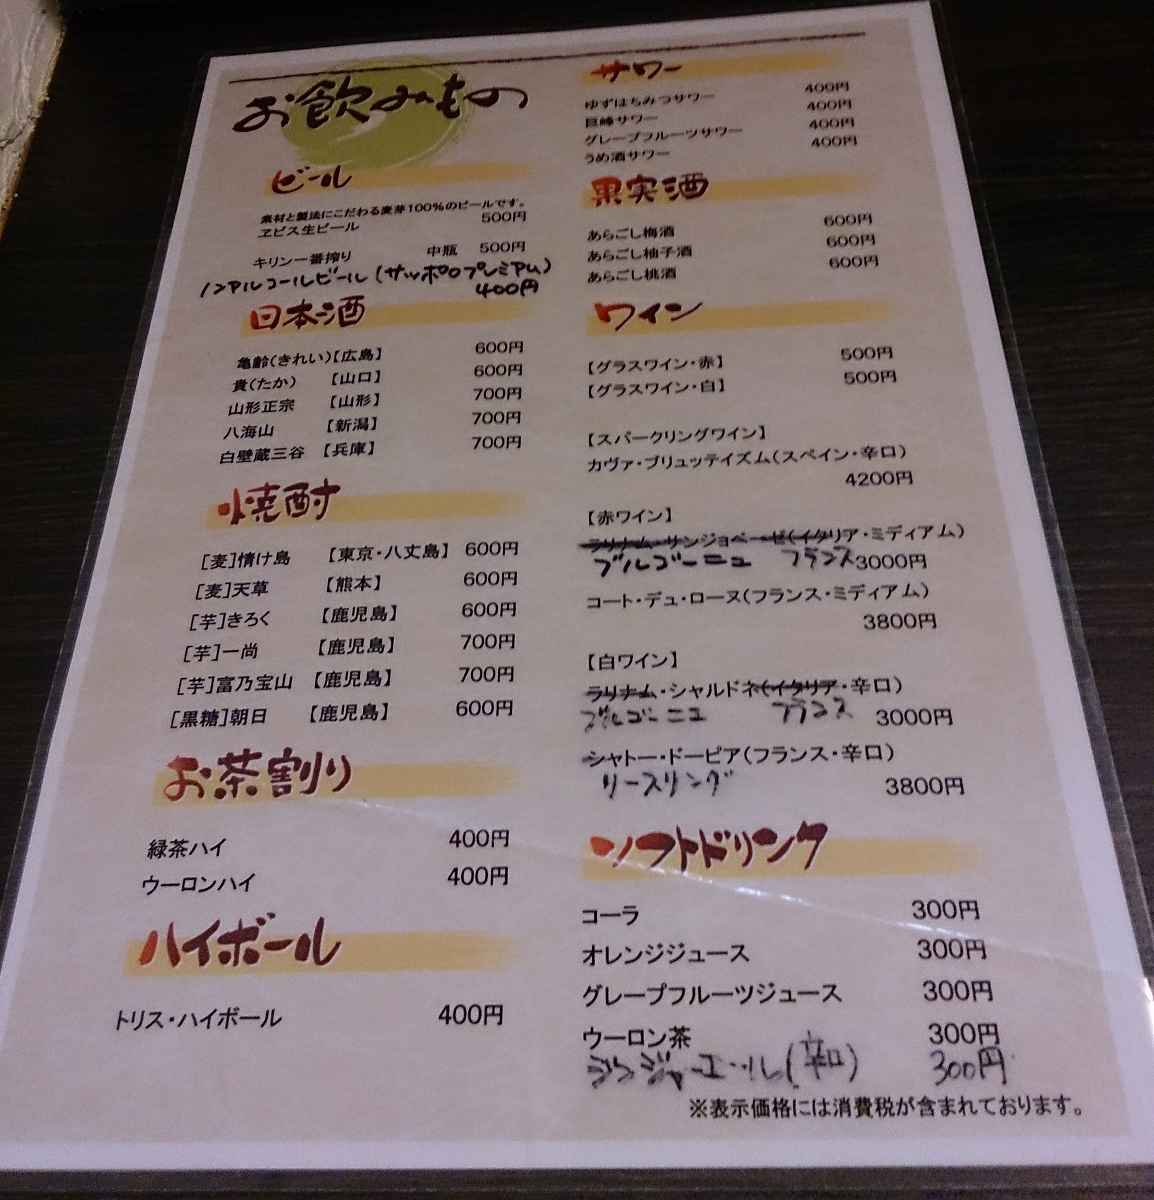 お飲みもの
ビール
素材と製法にこだわる麦芽100%のビールです。
ヱビス生ビール 500円
キリン一番搾り 中瓶 500円
ノンアルコールビール(サッポロプレミアム)
400円
日本酒
亀齢(きれい)【広島】 600円
貴(たか) 【山口】 600円
山形正宗 【山形】 700円
八海山 【新潟】 700円
白壁蔵三谷 【兵庫】 700円
焼酎
[麦]情け島 【東京・八丈島】 600円
[麦]天草 【熊本】 600円
[芋]きろく 【鹿児島】 600円
[芋]一尚 【鹿児島】 700円
[芋]富乃宝山 【鹿児島】 700円
[黒糖]朝日 【鹿児島】 600円
お茶割り
緑茶ハイ 400円
ウーロンハイ 400円
ハイボール
トリス・ハイボール 400円
サワー
ゆずはちみつサワー 400円
巨峰サワー 400円
グレープフルーツサワー 400円
うめ酒サワー 400円
果実酒
あらごし梅酒 600円
あらごし柚子酒 600円
あらごし桃酒 600円
ワイン
【グラスワイン・赤】 500円
【グラスワイン・白】 500円
【スパークリングワイン】
カヴァ・ブリュッテイズム(スペイン・辛口)
4200円
【赤ワイン】
ラリナム・サンジョベーゼ(イタリア・ミディアム)
ブルゴーニュ フランス 3000円
コート・デュ・ローヌ(フランス・ミディアム)
3800円
【白ワイン】
ラリナム・シャルドネ(イタリア・辛口)
ブルゴーニュ フランス 3000円
シャトー・ドーピア(フランス・辛口)
リースリング 3800円
ソフトドリンク
コーラ 300円
オレンジジュース 300円
グレープフルーツジュース 300円
ウーロン茶 300円
ジンジャーエール(辛口) 300円
※表示価格には消費税が含まれております。